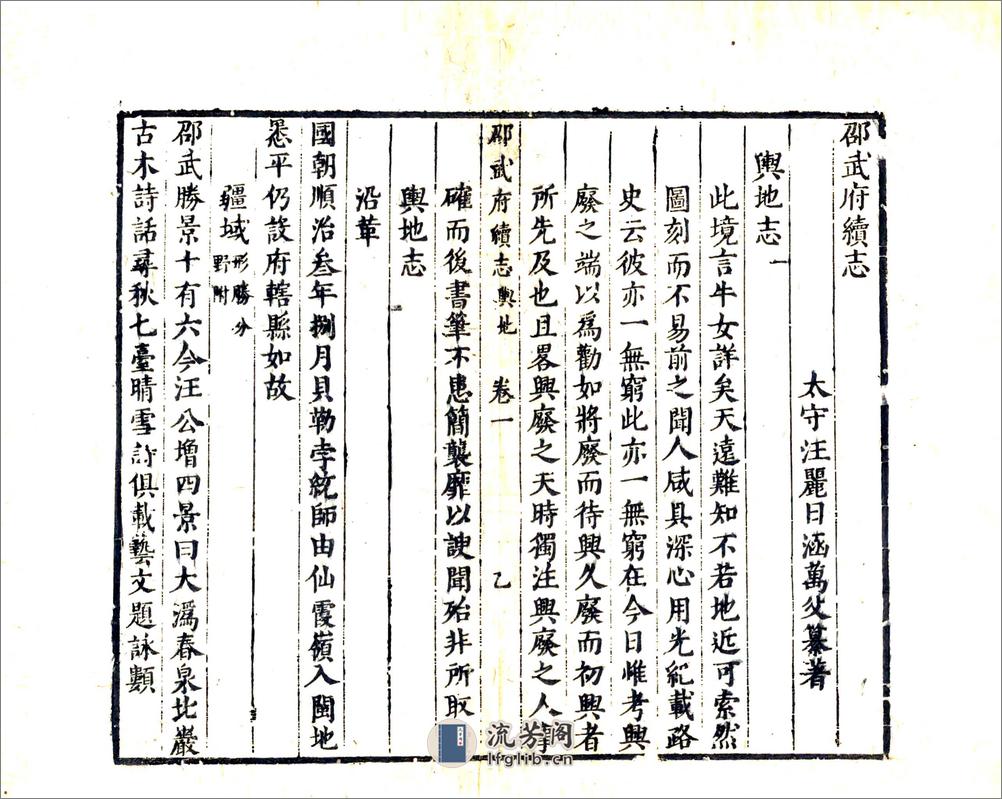 邵武府續志
太守汪麗日涵萬父纂著
輿地志一
此境言牛女詳矣天遠難知不若地近可索然
圖刻而不易前之聞人咸具深心用光紀載路
史云彼亦一無窮此亦一無窮在今日惟考興
廢之端以爲勸如將廢而待興久廢而初興者
所先及也且畧興廢之天時獨注興廢之人事
邵武府續志 輿地 卷一 乙
確而後書筆不患簡襲靡以謏聞殆非所取
輿地志
沿革
國朝順治叁年捌月貝勒孛統師由仙霞嶺入閩地
悉平仍設府轄縣如故
疆域 形勝分野附
邵武勝景十有六今汪公增四景曰大溈春泉比巖
古木詩話尋秋七臺晴雪詩俱載藝文題詠類
流芳閣
lfglib.cn